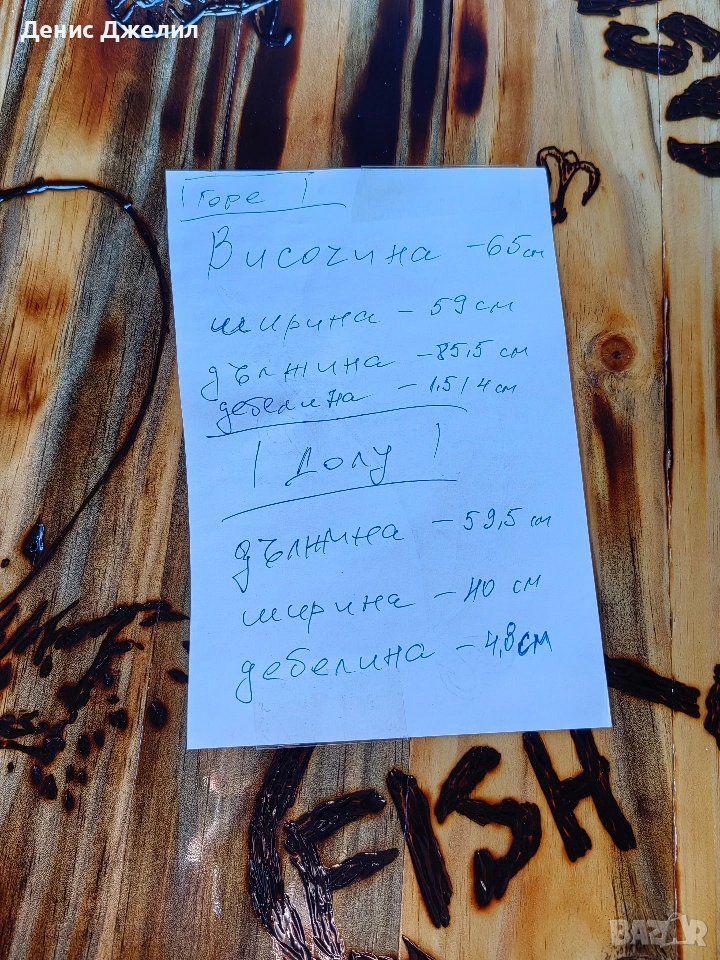 Денис Джелил
Горе
Височина - 65 см
ширина - 59 см
дължина - 85,5 см
дебелина - 1,5 / 4 см
Долу
дължина - 59,5 см
ширина - 40 см
дебелина - 4,8 см
FISH
BAZAR